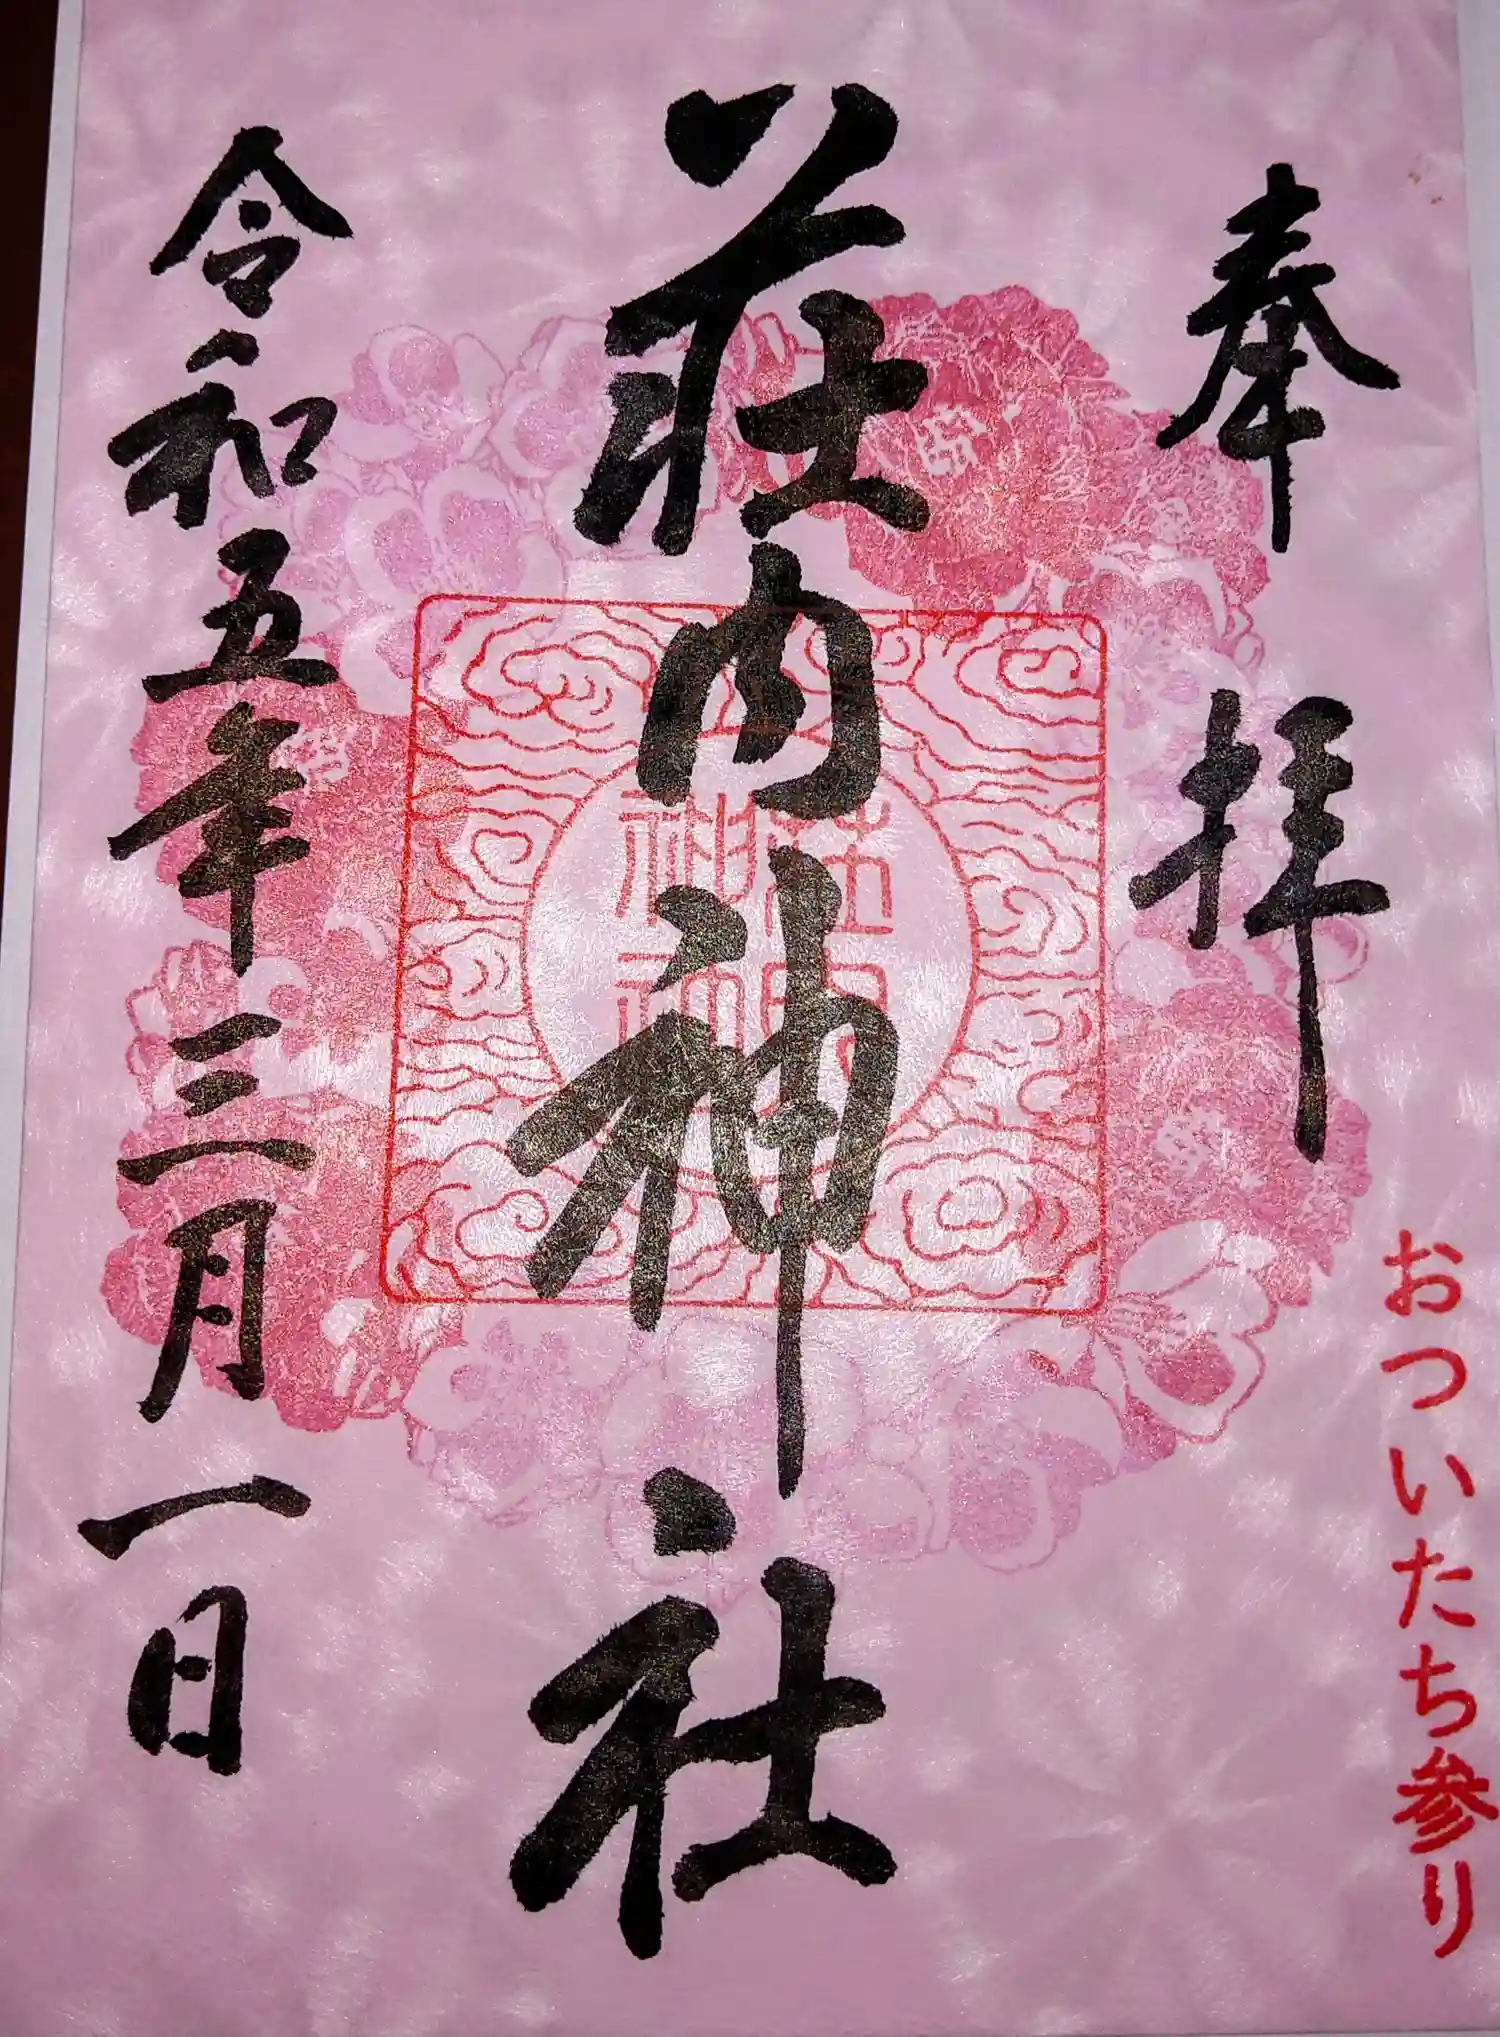 奉拝
おついたち参り
荘内神社
荘内神社
令和五年三月一日